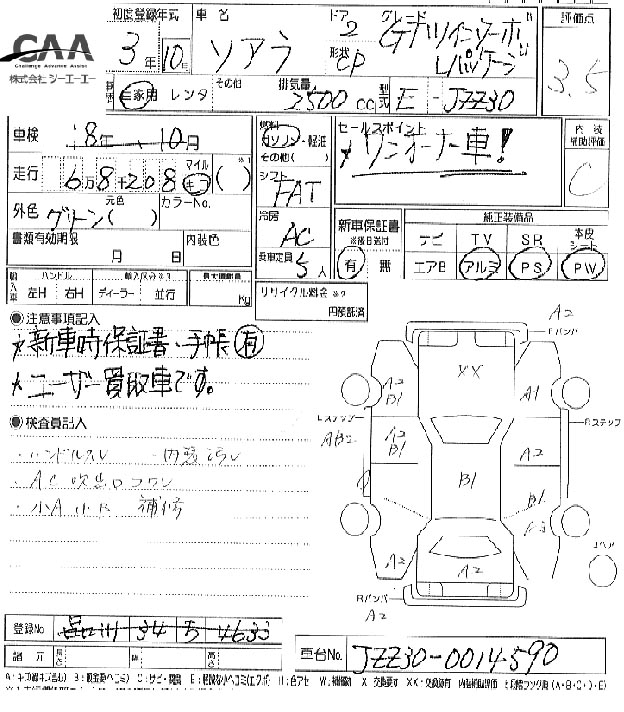 初度登録年 年式 車名 ドア グレード 評価点
CAA
Challenge Advance Assist
株式会社 シーエーエー
3年 10月 ソアラ 2 GTツインターボ
形状 CP Lパッケージ
3.5
自家用 レンタ その他 排気量 2500cc 型式 E-JZZ30
車検 8年 10月
燃料 ガソリン・軽油
その他( )
セールスポイント
ワンオーナー車!
内装補助評価
C
走行 6万8千208 マイル キロ ( )
シフト FAT
外色 グリーン 元色( ) カラーNo.
冷房 AC
新車保証書
※後日送付
有 無
純正装備品
ナビ TV SR 本皮シート
エアB アルミ PS PW
書類有効期限 月 日 内装色
乗車定員 5人
輸入車 ハンドル 左H 右H ディーラー 並行 最大積載量 Kg
リサイクル料金 円預託済
●注意事項記入
新車時保証書・手帳有
ユーザー買取車です。
●検査員記入
・ハンドルスレ ・内張汚レ
・AC吹出口コワレ
・小A小B 補修
A2
Fバンパ
XX
A2
B1
A1
Lステップ
Rステップ
A2
B1
A2
B1
B1
A2
A2
スペア
Rバンパ
A2
登録No 34 ち 4633
諸元 長さ 幅 高さ
車台No. JZZ30-0014590